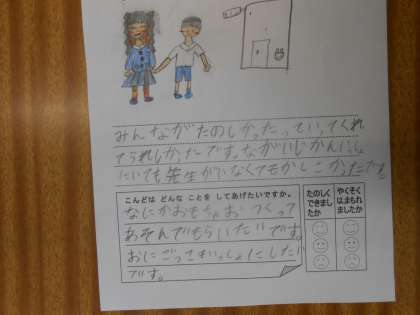 みんながたのしかったっていってくれ
てうれしかったです。ながいじかんいっしょ
にいても先生がいなくてもかしこかったです。
こんどは どんな ことを してあげたいですか。
なにかおもちゃおつくって
あそんでもらいたいです。
おにごっこもいっしょにしたい
です。
たのしくできましたか
やくそくはまもれましたか